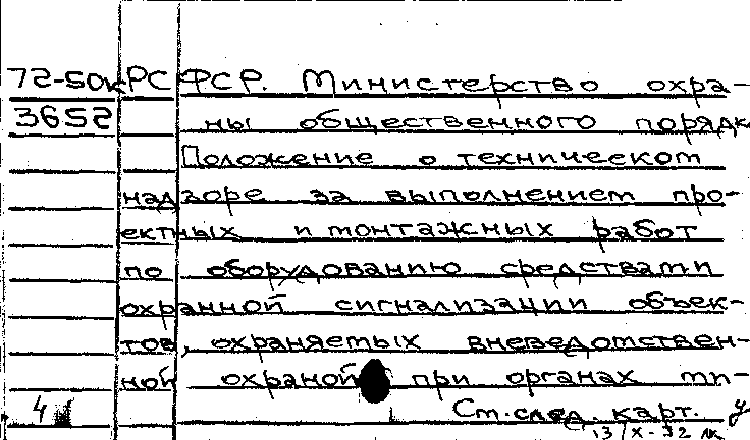 72-50к РСФСР. Министерство охра-
3652 ны общественного порядк
Положение о техническом
надзоре за выполнением про-
ектных и монтажных работ
по оборудованию средствами
охранной сигнализации объек-
тов, охраняемых вневедомствен-
ной охраной при органах ми-
4 См. след. карт.
13/X-72